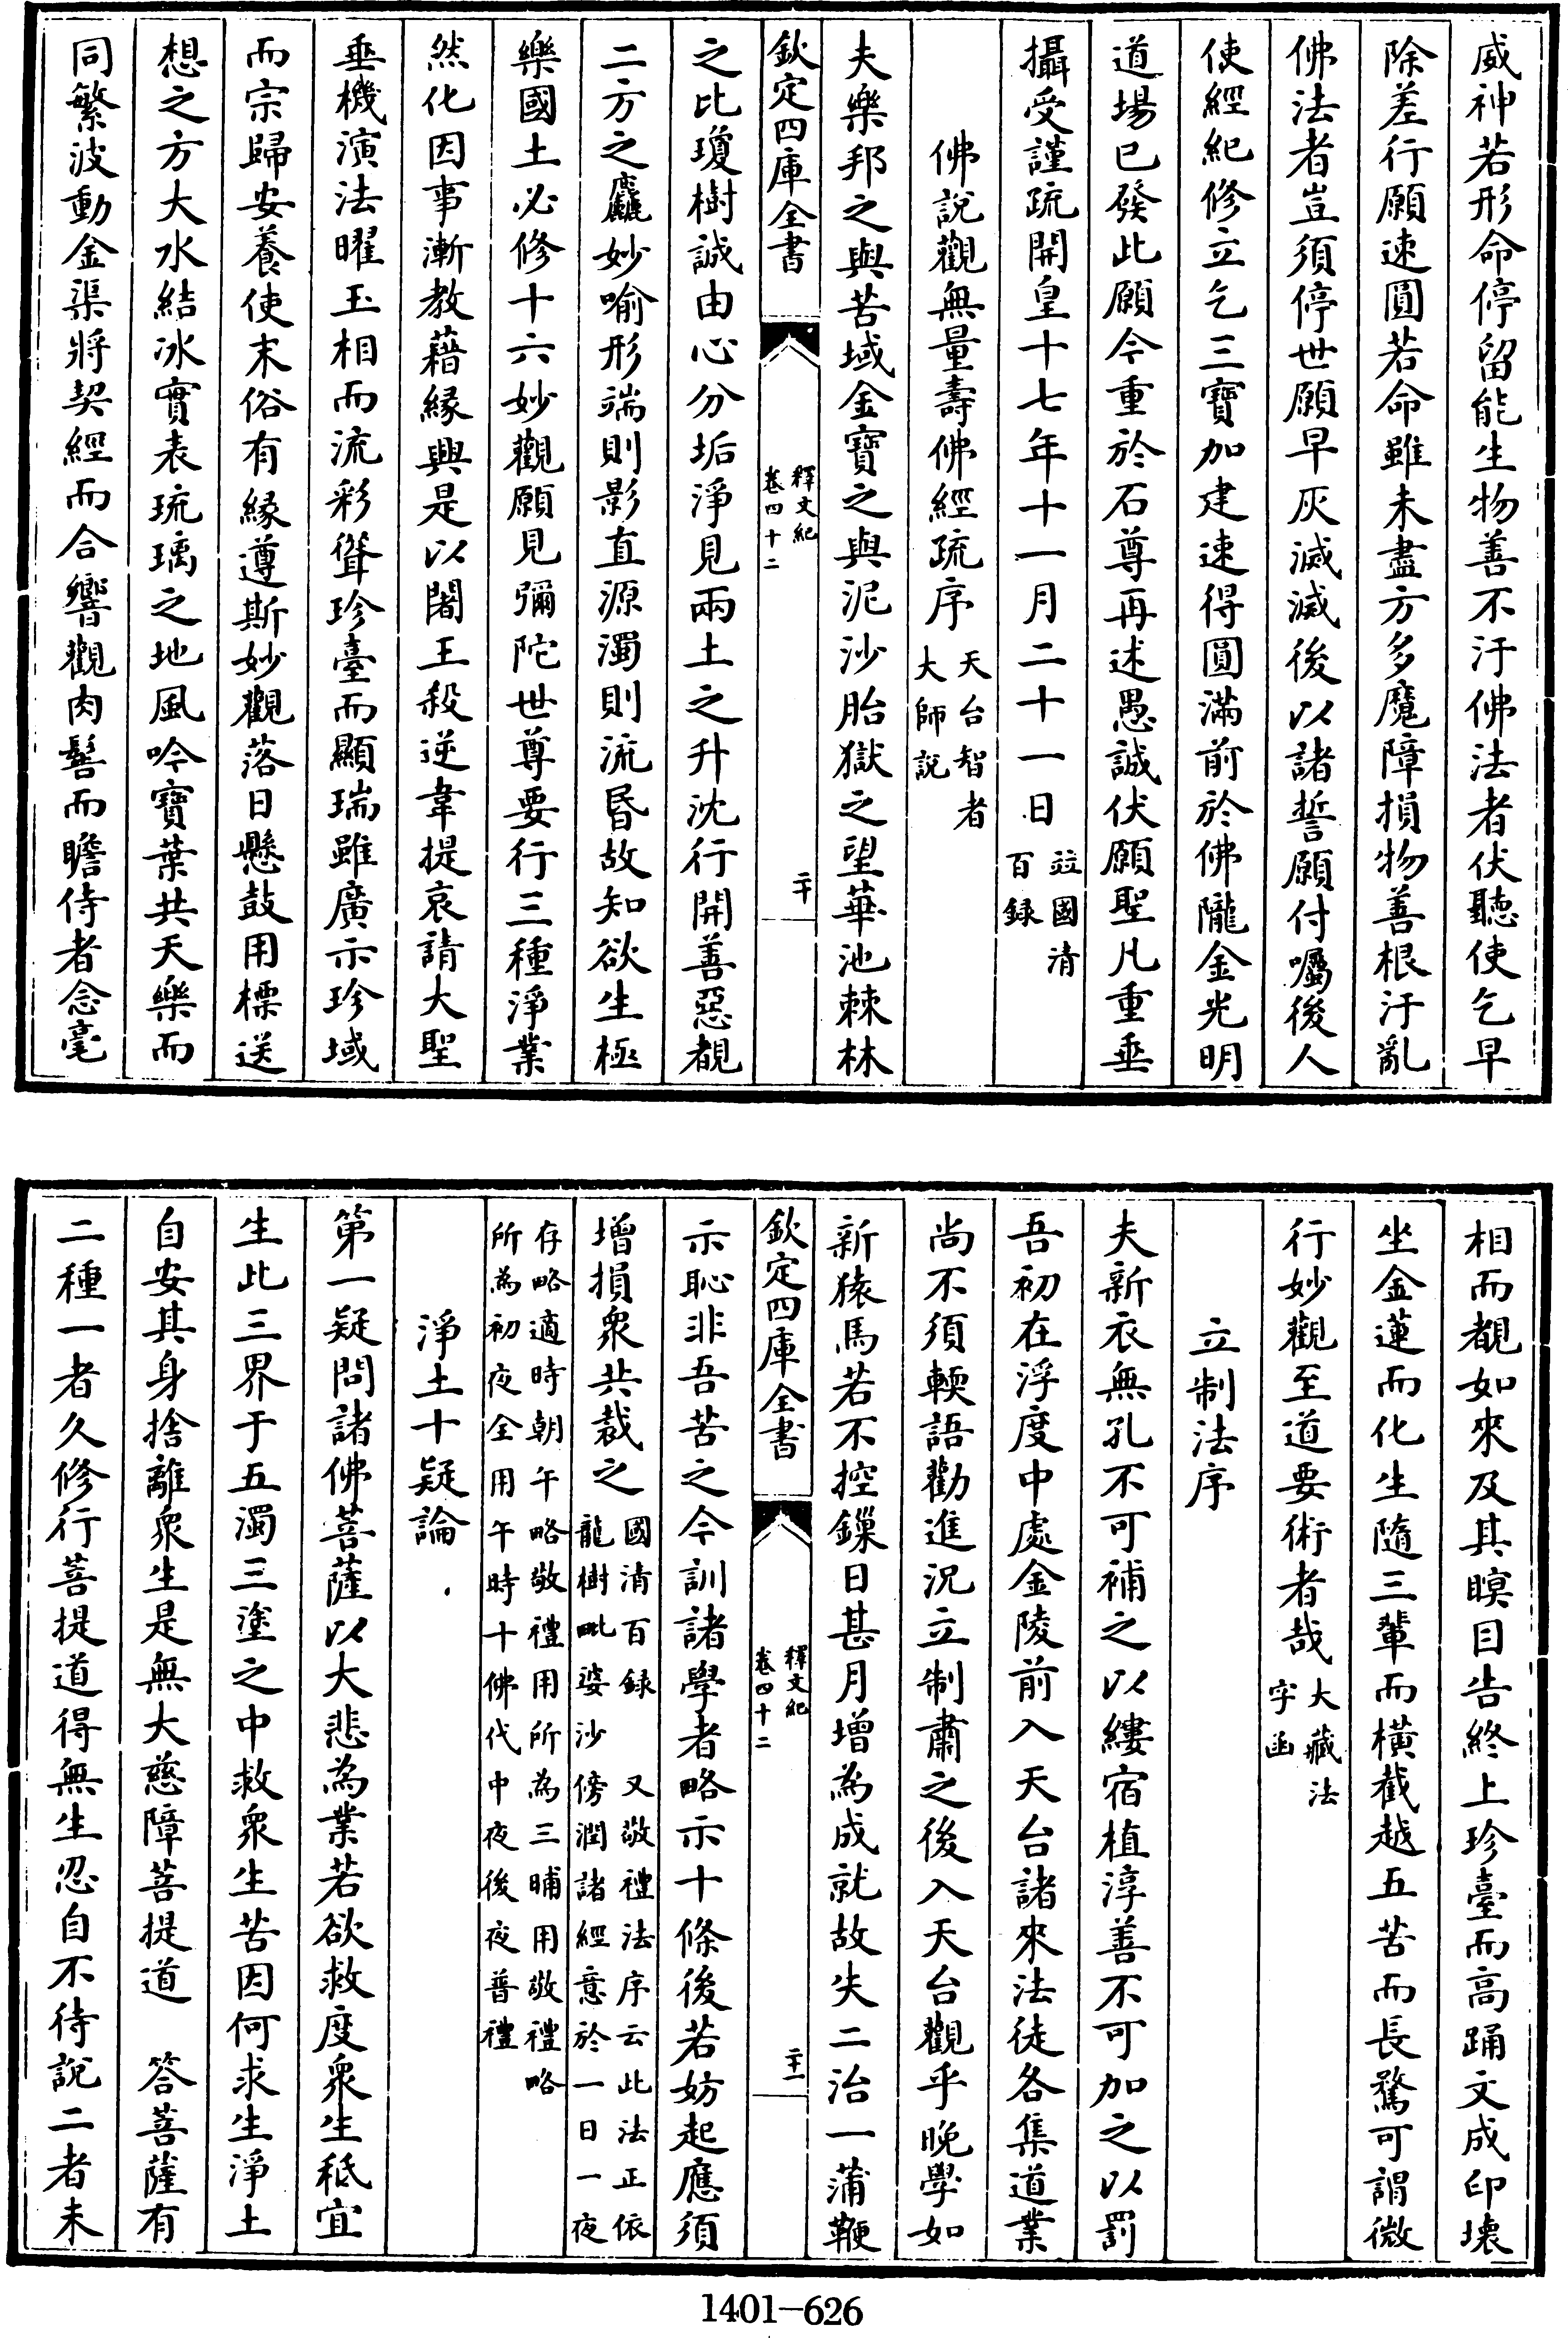 威神若形命停留能生物善不汙佛法者伏聽使乞早
除差行願速圓若命雖未盡方多魔障損物善根汙亂
佛法者豈須停世願早灰滅滅後以諸誓願付囑後人
使經紀修立乞三寶加建速得圓滿前於佛隴金光明
道場已發此願今重於石尊再述愚誠伏願聖凡重垂
攝受謹疏開皇十七年十一月二十一日並國清百録
佛說觀無量壽佛經疏序天台智者大師說
夫樂邦之與苦域金寶之與泥沙胎獄之望華池棘林
欽定四庫全書 釋文紀卷四十二 二十
之比瓊樹誠由心分垢淨見兩土之升沈行開善惡覩
二方之麤妙喻形端則影直源濁則流昏故知欲生極
樂國土必修十六妙觀願見彌陀世尊要行三種淨業
然化因事漸教藉緣興是以闍王殺逆韋提哀請大聖
垂機演法曜玉相而流彩聳珍臺而顯瑞雖廣示珍域
而宗歸安養使末俗有緣遵斯妙觀落日懸鼓用標送
想之方大水結冰實表琉璃之地風吟寶葉共天樂而
同繁波動金渠將契經而合響觀肉髻而瞻侍者念毫
相而覩如來及其瞑目告終上珍臺而高踊文成印壞
坐金蓮而化生隨三輩而橫截越五苦而長騖可謂微
行妙觀至道要術者哉大藏法字函
立制法序
夫新衣無孔不可補之以縷宿植淳善不可加之以罰
吾初在浮度中處金陵前入天台諸來法徒各集道業
尚不須輭語勸進況立制肅之後入天台觀乎晚學如
新猿馬若不控鏁日甚月增為成就故失二治一蒲鞭
欽定四庫全書 釋文紀卷四十二 二十一
示恥非吾苦之今訓諸學者略示十條後若妨起應須
增損衆共裁之國清百録 又敬禮法序云此法正依龍樹毗婆沙傍潤諸經意於一日一夜
存略適時朝午略敬禮用所為三晡用敬禮略所為初夜全用午時十佛代中夜後夜普禮
淨土十疑論
第一疑問諸佛菩薩以大悲為業若欲救度衆生秪宜
生此三界于五濁三塗之中救衆生苦因何求生淨土
自安其身捨離衆生是無大慈障菩提道 答菩薩有
二種一者久修行菩提道得無生忍自不待說二者未
1401-626